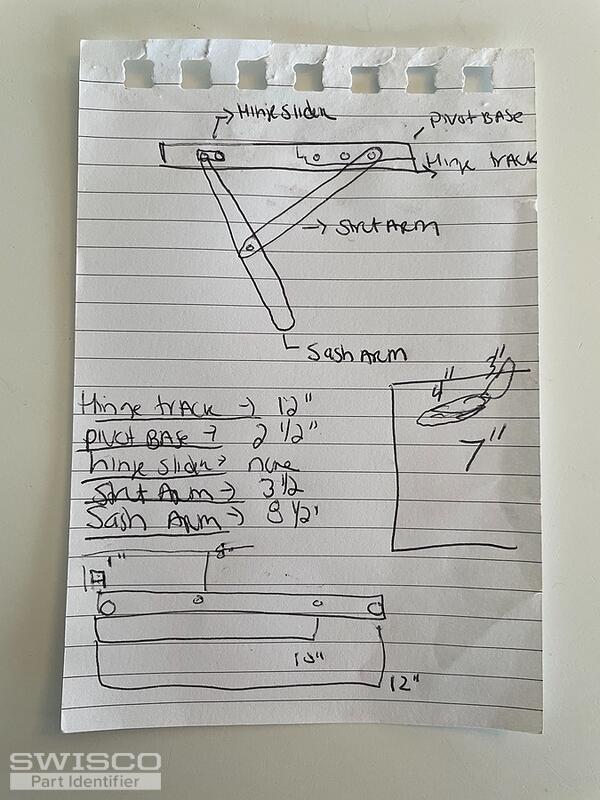 Hinje Slider
PIVOT BASE
Hinge TRACK
Strut ARM
Sash ARM
Hinge tRACK → 12"
PIVOT BASE → 2 1/2"
hinje slider → none
Strut Arm → 3 1/2
Sash ARM → 8 1/2"
4"
3"
7"
1"
10"
12"
SWISCO
Part Identifier